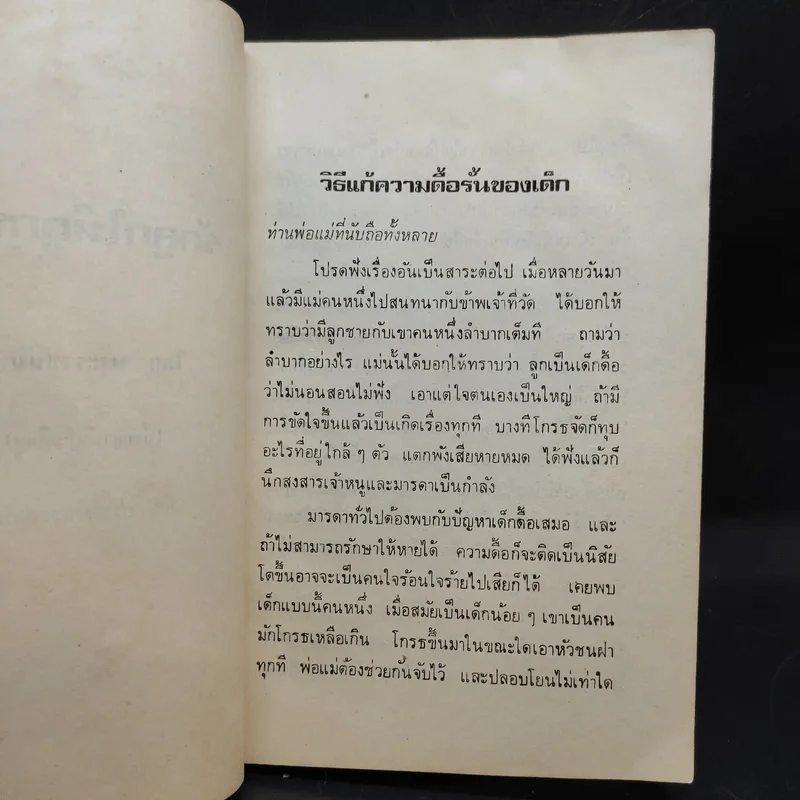 วิธีแก้ความดื้อรั้นของเด็ก
ท่านพ่อแม่ที่นับถือทั้งหลาย
โปรดฟังเรื่องอันเป็นสาระต่อไป เมื่อหลายวันมา
แล้วมีแม่คนหนึ่งไปสนทนากับข้าพเจ้าที่วัด ได้บอกให้
ทราบว่ามีลูกชายกับเขาคนหนึ่งลำบากเต็มที ถามว่า
ลำบากอย่างไร แม่นั้นได้บอกให้ทราบว่า ลูกเป็นเด็กดื้อ
ว่าไม่นอนสอนไม่ฟัง เอาแต่ใจตนเองเป็นใหญ่ ถ้ามี
การขัดใจขึ้นแล้วเป็นเกิดเรื่องทุกที บางทีโกรธจัดก็ทุบ
อะไรที่อยู่ใกล้ ๆ ตัว แตกพังเสียหายหมด ได้ฟังแล้วก็
นึกสงสารเจ้าหนูและมารดาเป็นกำลัง
มารดาทั่วไปต้องพบกับปัญหาเด็กดื้อเสมอ และ
ถ้าไม่สามารถรักษาให้หายได้ ความดื้อก็จะติดเป็นนิสัย
โตขึ้นอาจจะเป็นคนใจร้อนใจร้ายไปเสียก็ได้ เคยพบ
เด็กแบบนี้คนหนึ่ง เมื่อสมัยเป็นเด็กน้อย ๆ เขาเป็นคน
มักโกรธเหลือเกิน โกรธขึ้นมาในขณะใดเอาหัวชนฝา
ทุกที พ่อแม่ต้องช่วยกันจับไว้ และปลอบโยนไม่เท่าใด